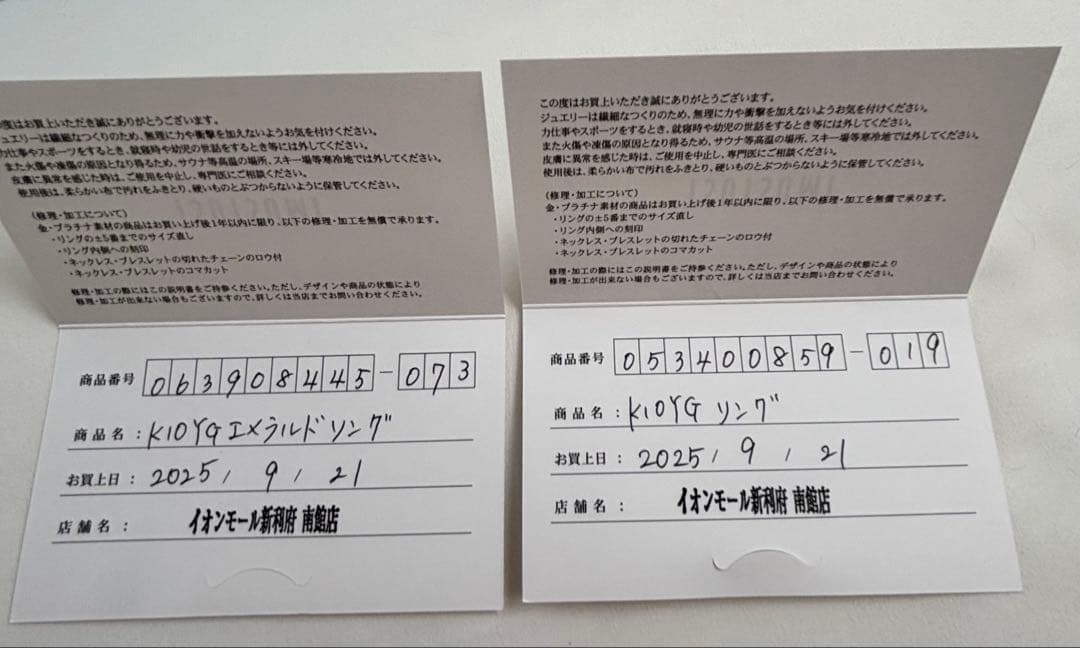 の度はお買上いただき誠にありがとうございます。
ュエリーは繊細なつくりのため、無理に力や衝撃を加えないようお気を付けください。
力仕事やスポーツをするとき、就寝時や幼児の世話をするとき等には外してください。
また火傷や凍傷の原因となり得るため、サウナ等高温の場所、スキー場等寒冷地では外してください。
皮膚に異常を感じた時は、ご使用を中止し、専門医にご相談ください。
使用後は、柔らかい布で汚れをふきとり、硬いものとぶつからないように保管してください。
(修理・加工について)
金・プラチナ素材の商品はお買い上げ後1年以内に限り、以下の修理・加工を無償で承ります。
・リングの±5番までのサイズ直し
・リング内側への刻印
・ネックレス・ブレスレットの切れたチェーンのロウ付
・ネックレス・ブレスレットのコマカット
修理・加工の際にはこの説明書をご持参ください。ただし、デザインや商品の状態により
修理・加工が出来ない場合もございますので、詳しくは当店までお問い合わせください。
商品番号 063908445-073
商品名：K10YGエメラルドリング
お買上日：2025, 9, 21
店舗名：イオンモール新利府 南館店
この度はお買上いただき誠にありがとうございます。
ジュエリーは繊細なつくりのため、無理に力や衝撃を加えないようお気を付けください。
力仕事やスポーツをするとき、就寝時や幼児の世話をするとき等には外してください。
また火傷や凍傷の原因となり得るため、サウナ等高温の場所、スキー場等寒冷地では外してください。
皮膚に異常を感じた時は、ご使用を中止し、専門医にご相談ください。
使用後は、柔らかい布で汚れをふきとり、硬いものとぶつからないように保管してください。
(修理・加工について)
金・プラチナ素材の商品はお買い上げ後1年以内に限り、以下の修理・加工を無償で承ります。
・リングの±5番までのサイズ直し
・リング内側への刻印
・ネックレス・ブレスレットの切れたチェーンのロウ付
・ネックレス・ブレスレットのコマカット
修理・加工の際にはこの説明書をご持参ください。ただし、デザインや商品の状態により
修理・加工が出来ない場合もございますので、詳しくは当店までお問い合わせください。
商品番号 053400859-019
商品名：K10YG リング
お買上日：2025, 9, 21
店舗名：イオンモール新利府 南館店